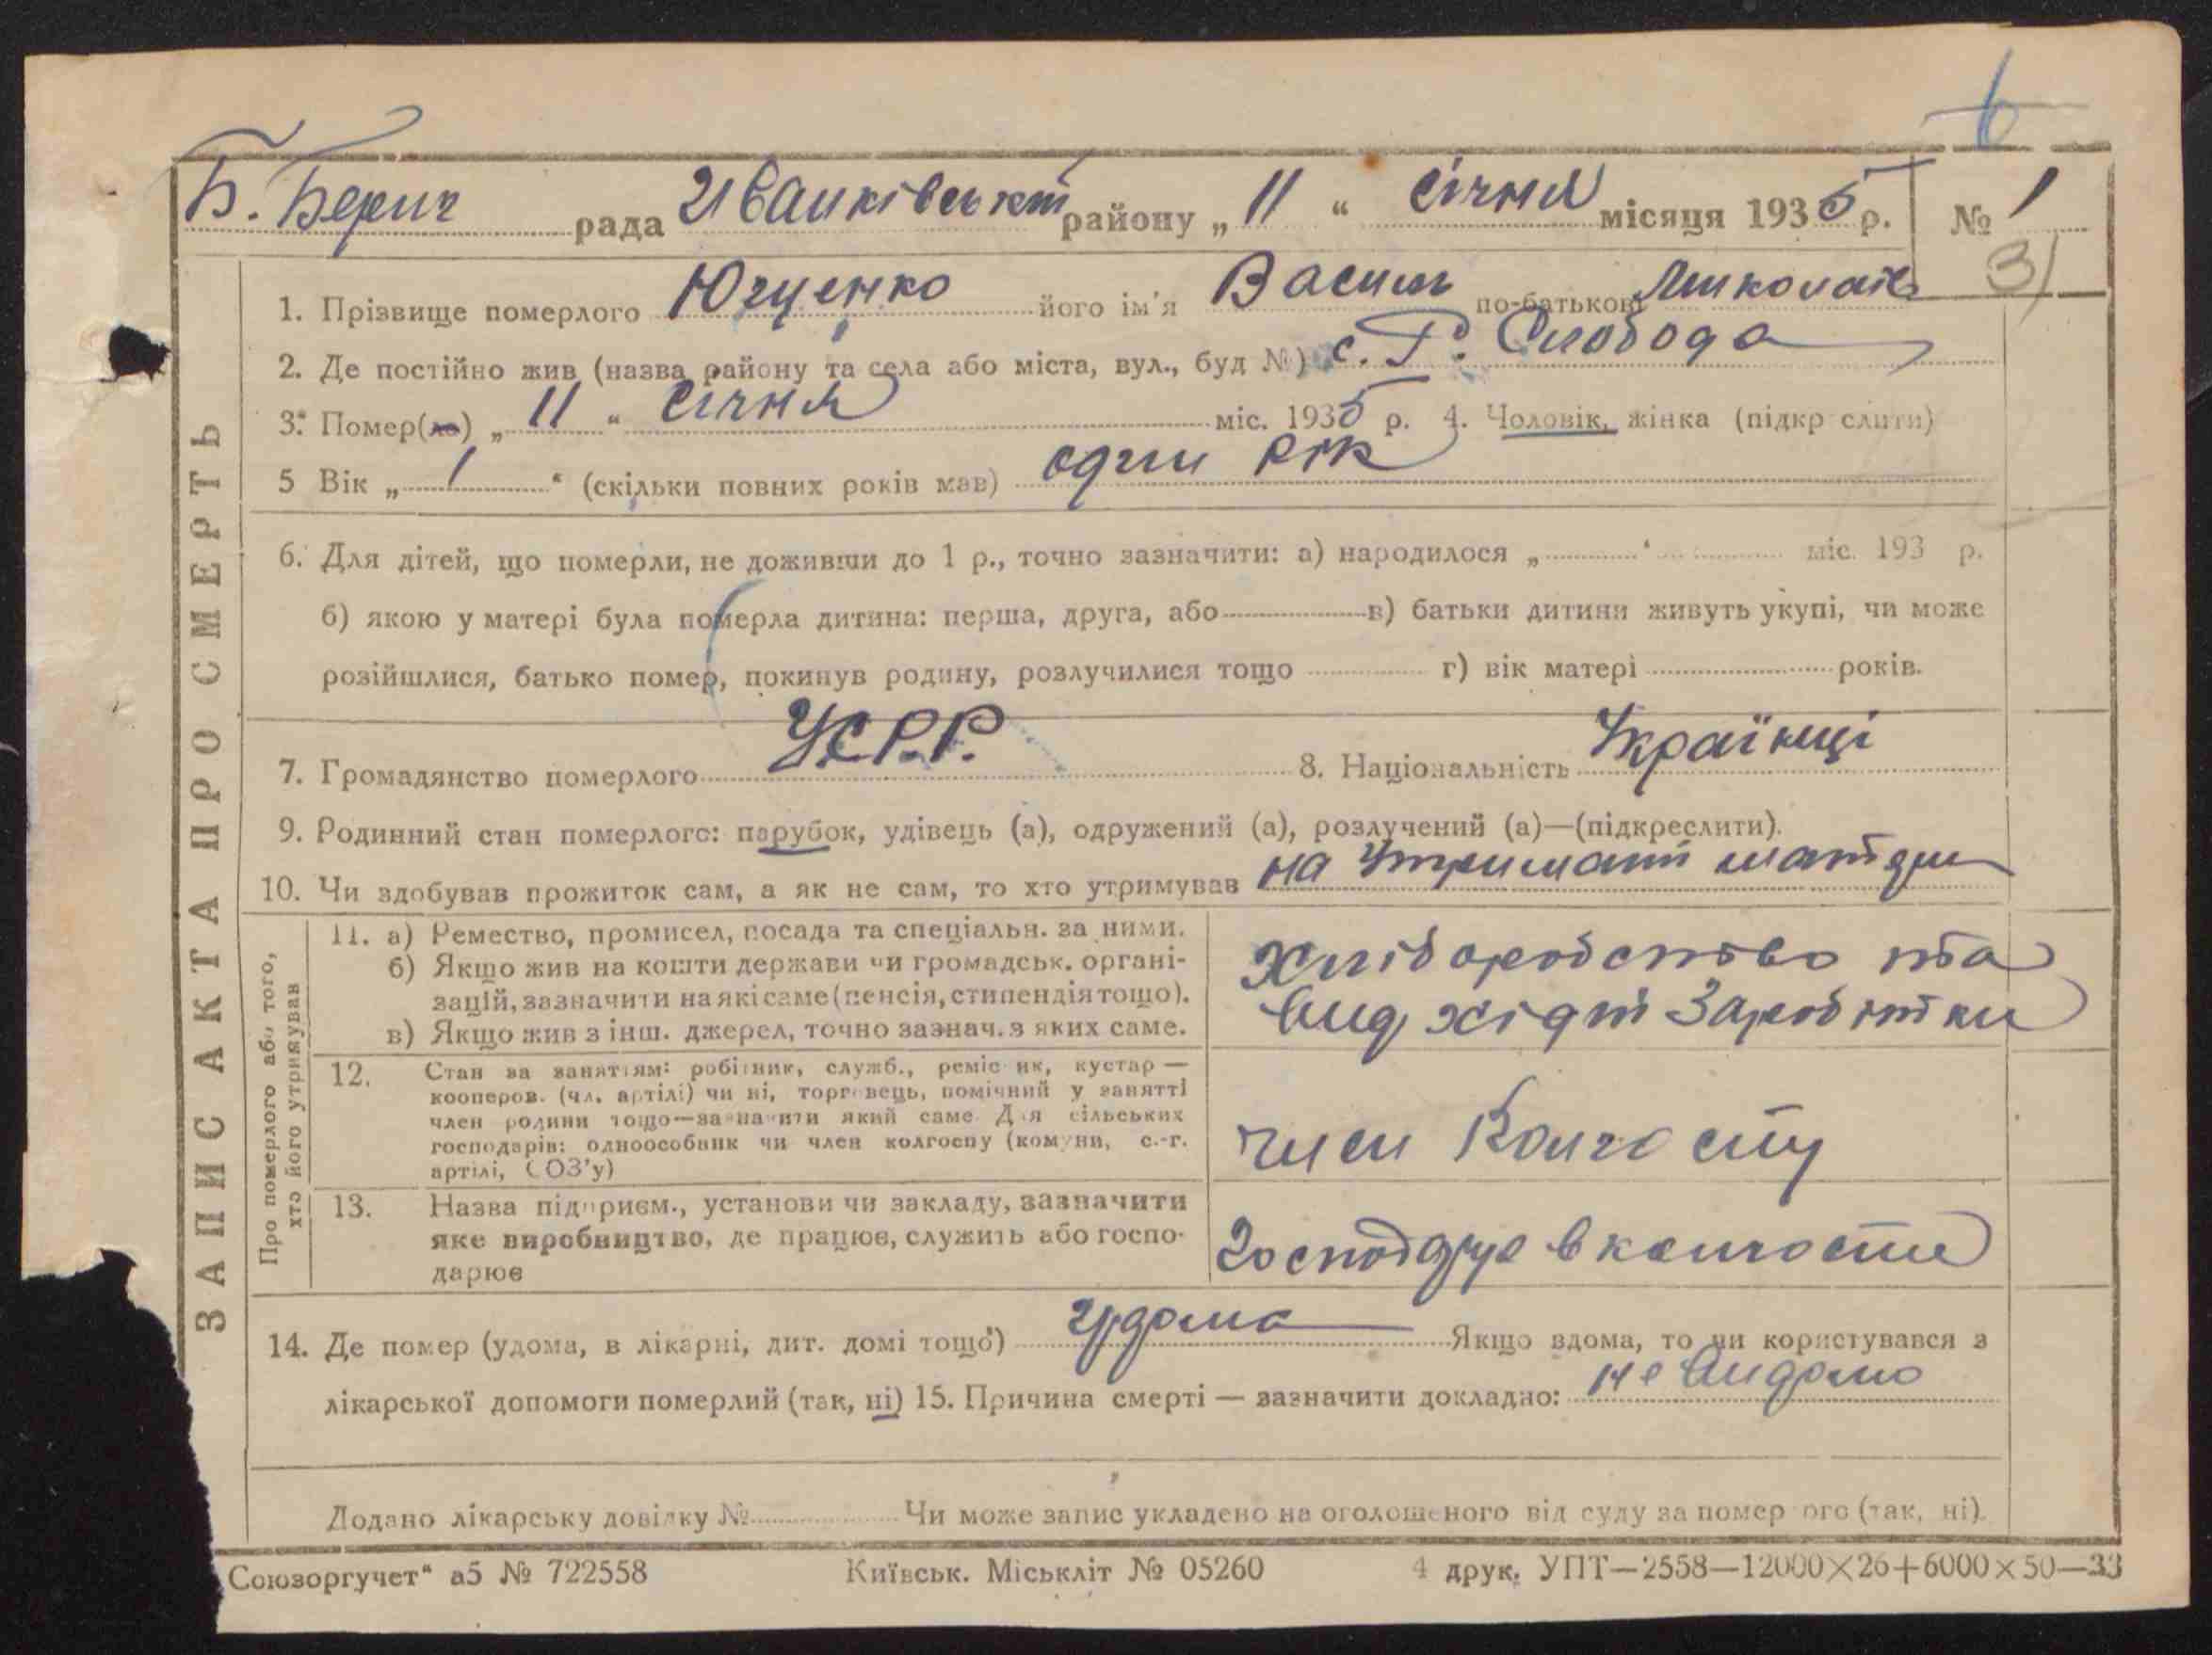 6
Б. Берич рада Иванківськ району „ 11 “ січня місяця 1935 р. № 1
31
1. Прізвище померлого Ющенко його ім'я Василь по-батькові Миколаїв
2. Де постійно жив (назва району та села або міста, вул., буд №) с. Р. Слобода
3. Помер(ло) „ 11 “ січня міс. 1935 р. 4. Чоловік, жінка (підкр слити)
5 Вік „ 1 “ (скільки повних років мав) один рік
6. Для дітей, що померли, не доживши до 1 р., точно зазначити: а) народилося „ “ міс. 193 р.
б) якою у матері була померла дитина: перша, друга, або в) батьки дитини живуть укупі, чи може
розійшлися, батько помер, покинув родину, розлучилися тощо г) вік матері років.
7. Громадянство померлого У.С.Р.Р. 8. Національність Українці
9. Родинний стан померлого: парубок, удівець (а), одружений (а), розлучений (а)—(підкреслити).
10. Чи здобував прожиток сам, а як не сам, то хто утримував на утримані
ЗАПИС АКТА ПРО СМЕРТЬ
Про померлого або того, хто його утримував
11. а) Ремество, промисел, посада та спеціальн. за ними.
б) Якщо жив на кошти держави чи громадськ. органі-
зацій, зазначити на які саме (пенсія, стипендія тощо).
в) Якщо жив з інш. джерел, точно зазнач. з яких саме.
Хліборобство та
видхідні Заробітки
12. Стан за занаттям: робітник, служб., реміс ик, кустар —
кооперов. (чл. артілі) чи ні, торговець, помічний у занятті
член родини тощо—зазначити який саме Для сільських
господарів: одноособник чи член колгоспу (комуни, с.-г.
артілі, СОЗ'у)
член Колгоспу
13. Назва підприєм., установи чи закладу, зазначити
яке виробництво, де працює, служить або госпо-
дарює
Господарує в колгоспі
14. Де помер (удома, в лікарні, дит. домі тощо) удома Якщо вдома, то чи користувався з
лікарської допомоги померлий (так, ні) 15. Причина смерті — зазначити докладно: не видомо
Додано лікарську довідку № Чи може запис укладено на оголошеного від суду за помер ого (так, ні).
Союзоргучет“ а5 № 722558 Київськ. Міськліт № 05260 4 друк. УПТ—2558—12000×26+6000×50—33